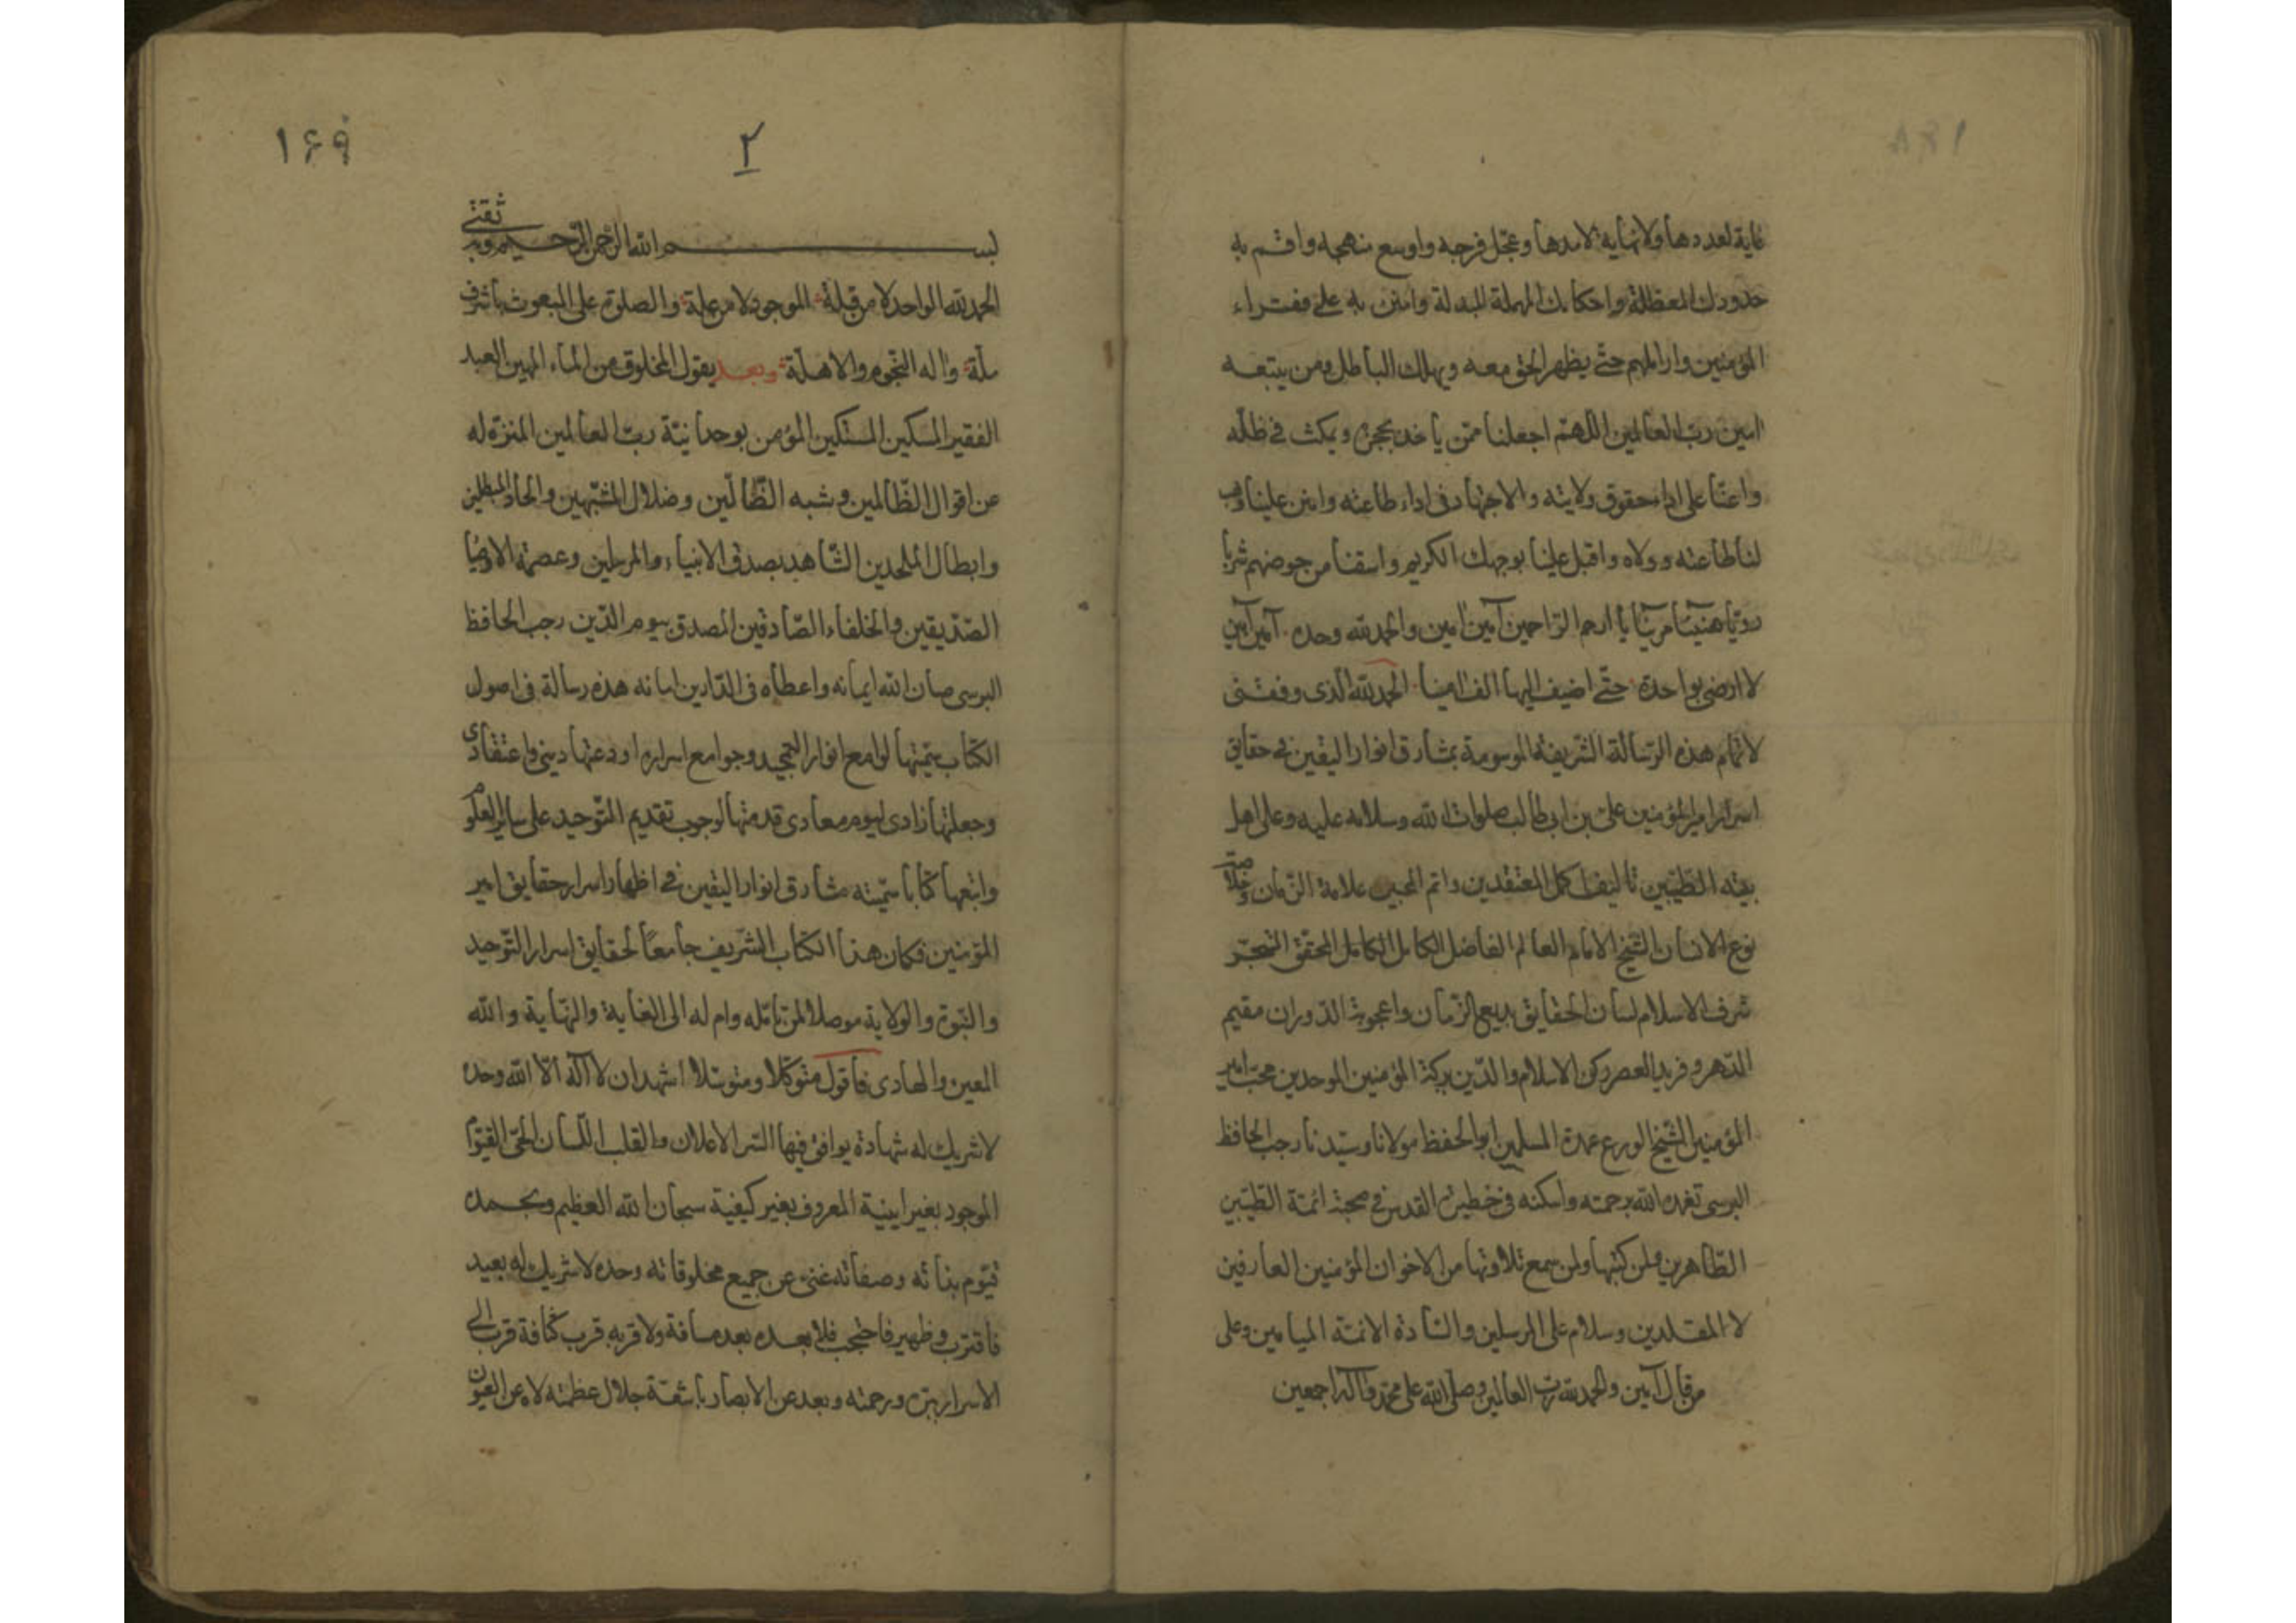 غاية لعددها ولا نهاية لامدها وعجّل فرجه واوسع منهجه واقم به
حدودك المعطلة واحكامك المهملة المبدلة وامنن به على فقراء
المؤمنين واراملهم حتّى يظهر الحق معه ويهلك الباطل ومن يتبعه
امين ربّ العالمين اللّهمّ اجعلنا ممّن ياخذ بحجزه ويمكث فى ظلّه
واعنّا على اداء حقوق ولايته والاجتهاد فى اداء طاعته وامنن علينا وهب
لنا طاعته وولاه واقبل علينا بوجهك الكريم واسقنا من حوضهم شربا
رويّا هنيئا مريّا يا ارحم الرّاحمين آمين امين والحمد لله وحده آمين آمين
لا ارضى بواحدة حتّى اضيف اليها الف امينا الحمد لله الّذى وفقنى
لاتمام هذه الرّسالة الشّريفة الموسومة بمشارق انوار اليقين فى حقايق
اسرار امير المؤمنين علىّ بن ابى طالب صلوات الله وسلامه عليه وعلى اهل
بيته الطّيّبين تاليف اكمل المعتقدين واتم المحبين علامة الزّمان وخلاصة
نوع الانسان الشّيخ الامام العالم الفاضل الكامل الكامل المحقّق المتبحّر
شرف الاسلام لسان الحقايق بديع الزّمان واعجوبة الدّوران مقيم
الدّهر وفريد العصر ركن الاسلام والدّين بركة المؤمنين الموحدين محبّ امير
المؤمنين الشّيخ الورع عمدة المسلمين ابو الحفظ مولانا وسيّدنا رجب الحافظ
البرسى تغمده الله برحمته واسكنه فى خطيرة القدس فى محبة ائمّة الطّيّبين
الطّاهرين ولمن كتبها ولمن سمع تلاوتها من الاخوان المؤمنين العارفين
لا المقلدين وسلام على المرسلين والسّادة الائمّة الميامين وعلى
من قال آمين والحمد لله ربّ العالمين وصلّى الله على محمّد وآله اجمعين
١۶٨
١۶٩
٢
بسم الله الرّحمن الرّحيم وبه ثقتى
الحمد لله الواحد لا من قلة الموجود لا من علة والصلوة على المبعوث باشرف
ملّة واله النّجوم والاهلّة وبعد يقول المخلوق من الماء المهين العبد
الفقير المسكين المستكين المؤمن بوحدانيّة ربّ العالمين المنزّه له
عن اقوال الظّالمين وشبه الظّالّين وضلال المشبّهين والحاد المبطلين
وابطال الملحدين الشّاهد بصدق الانبياء والمرسلين وعصمة الاوصيا
الصّدّيقين والخلفاء الصّادقين المصدق بيوم الدّين رجب الحافظ
البرسى صان الله ايمانه واعطاه فى الدّارين امانه هذه رسالة فى اصول
الكتاب سمّيتها لوامع انوار التمجيد وجوامع اسراره اودعتها دينى واعتقادى
وجعلتها زادى ليوم معادى قدمتها لوجوب تقديم التّوحيد على ساير العلوم
واتبعها كتابا سمّيته مشارق انوار اليقين فى اظهار اسرار حقايق امير
المؤمنين فكان هذا الكتاب الشّريف جامعًا لحقايق اسرار التّوحيد
والنّبوة والولاية موصلا لمن تامّله وام له الى الغاية والنّهاية والله
المعين والهادى فاقول متوكّلا ومتوسّلا اشهد ان لا آله الّا الله وحده
لا شريك له شهادة يوافق فيها السّر الاعلان والقلب اللّسان الحىّ القيّوم
الموجود بغير اينية المعروف بغير كيفية سبحان الله العظيم وبحمده
قيّوم بذاته وصفاته غنىّ عن جميع مخلوقاته وحده لا شريك له بعيد
فاقترب وظهير فاحتجب فلا بعده بعد مسافة ولا قربه قرب كثافة قرب الى
الاسرار ببره ورحمته وبعد عن الابصار باشعّة جلال عظمته لا عن العيون